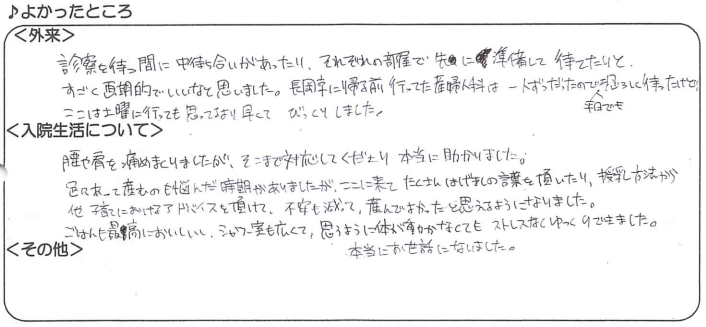 ♪よかったところ
<外来>
診察を待つ間に中待ち合いがあったり、それぞれの部屋で先に準備して待てたりと、
すごく画期的でいいなと思いました。長岡京に帰る前行ってた産婦人科は一人ずつだったので恐ろしく待ったけど
平日でも
ここは土曜に行っても思ってるより早くてびっくりしました。
<入院生活について>
腰や肩を痛めまくりましたが、そこまで対応してくださり本当に助かりました。
色々あって産むのも悩んだ時期がありましたが、ここに来てたくさんはげましの言葉を頂いたり、授乳方法から
他子育てにおけるアドバイスを頂けて、不安も減って、産んでよかったと思えるようになりました。
ごはんも最高においしいし、シャワー室も広くて、思うように体が動かなくてもストレスなくゆっくりできました。
<その他>
本当にお世話になりました。